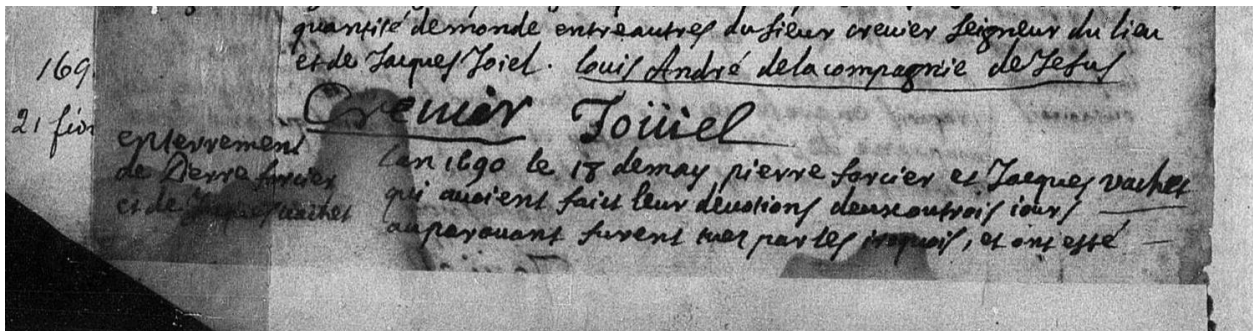 quantité de monde entreautres du sieur crevier seigneur du lieu
et de Jacques Joiel. Louis André de la compagnie de Jesus
Crevier Joüiel
169
21 fév
enterrement
de Pierre forcier
et de Jacques vachet
Lan 1690 le 18 de may pierre forcier et Jacques vachet
qui avoient faict leur devotions deux ou trois iours
auparavant furent tuez par les iroquois, et ont esté